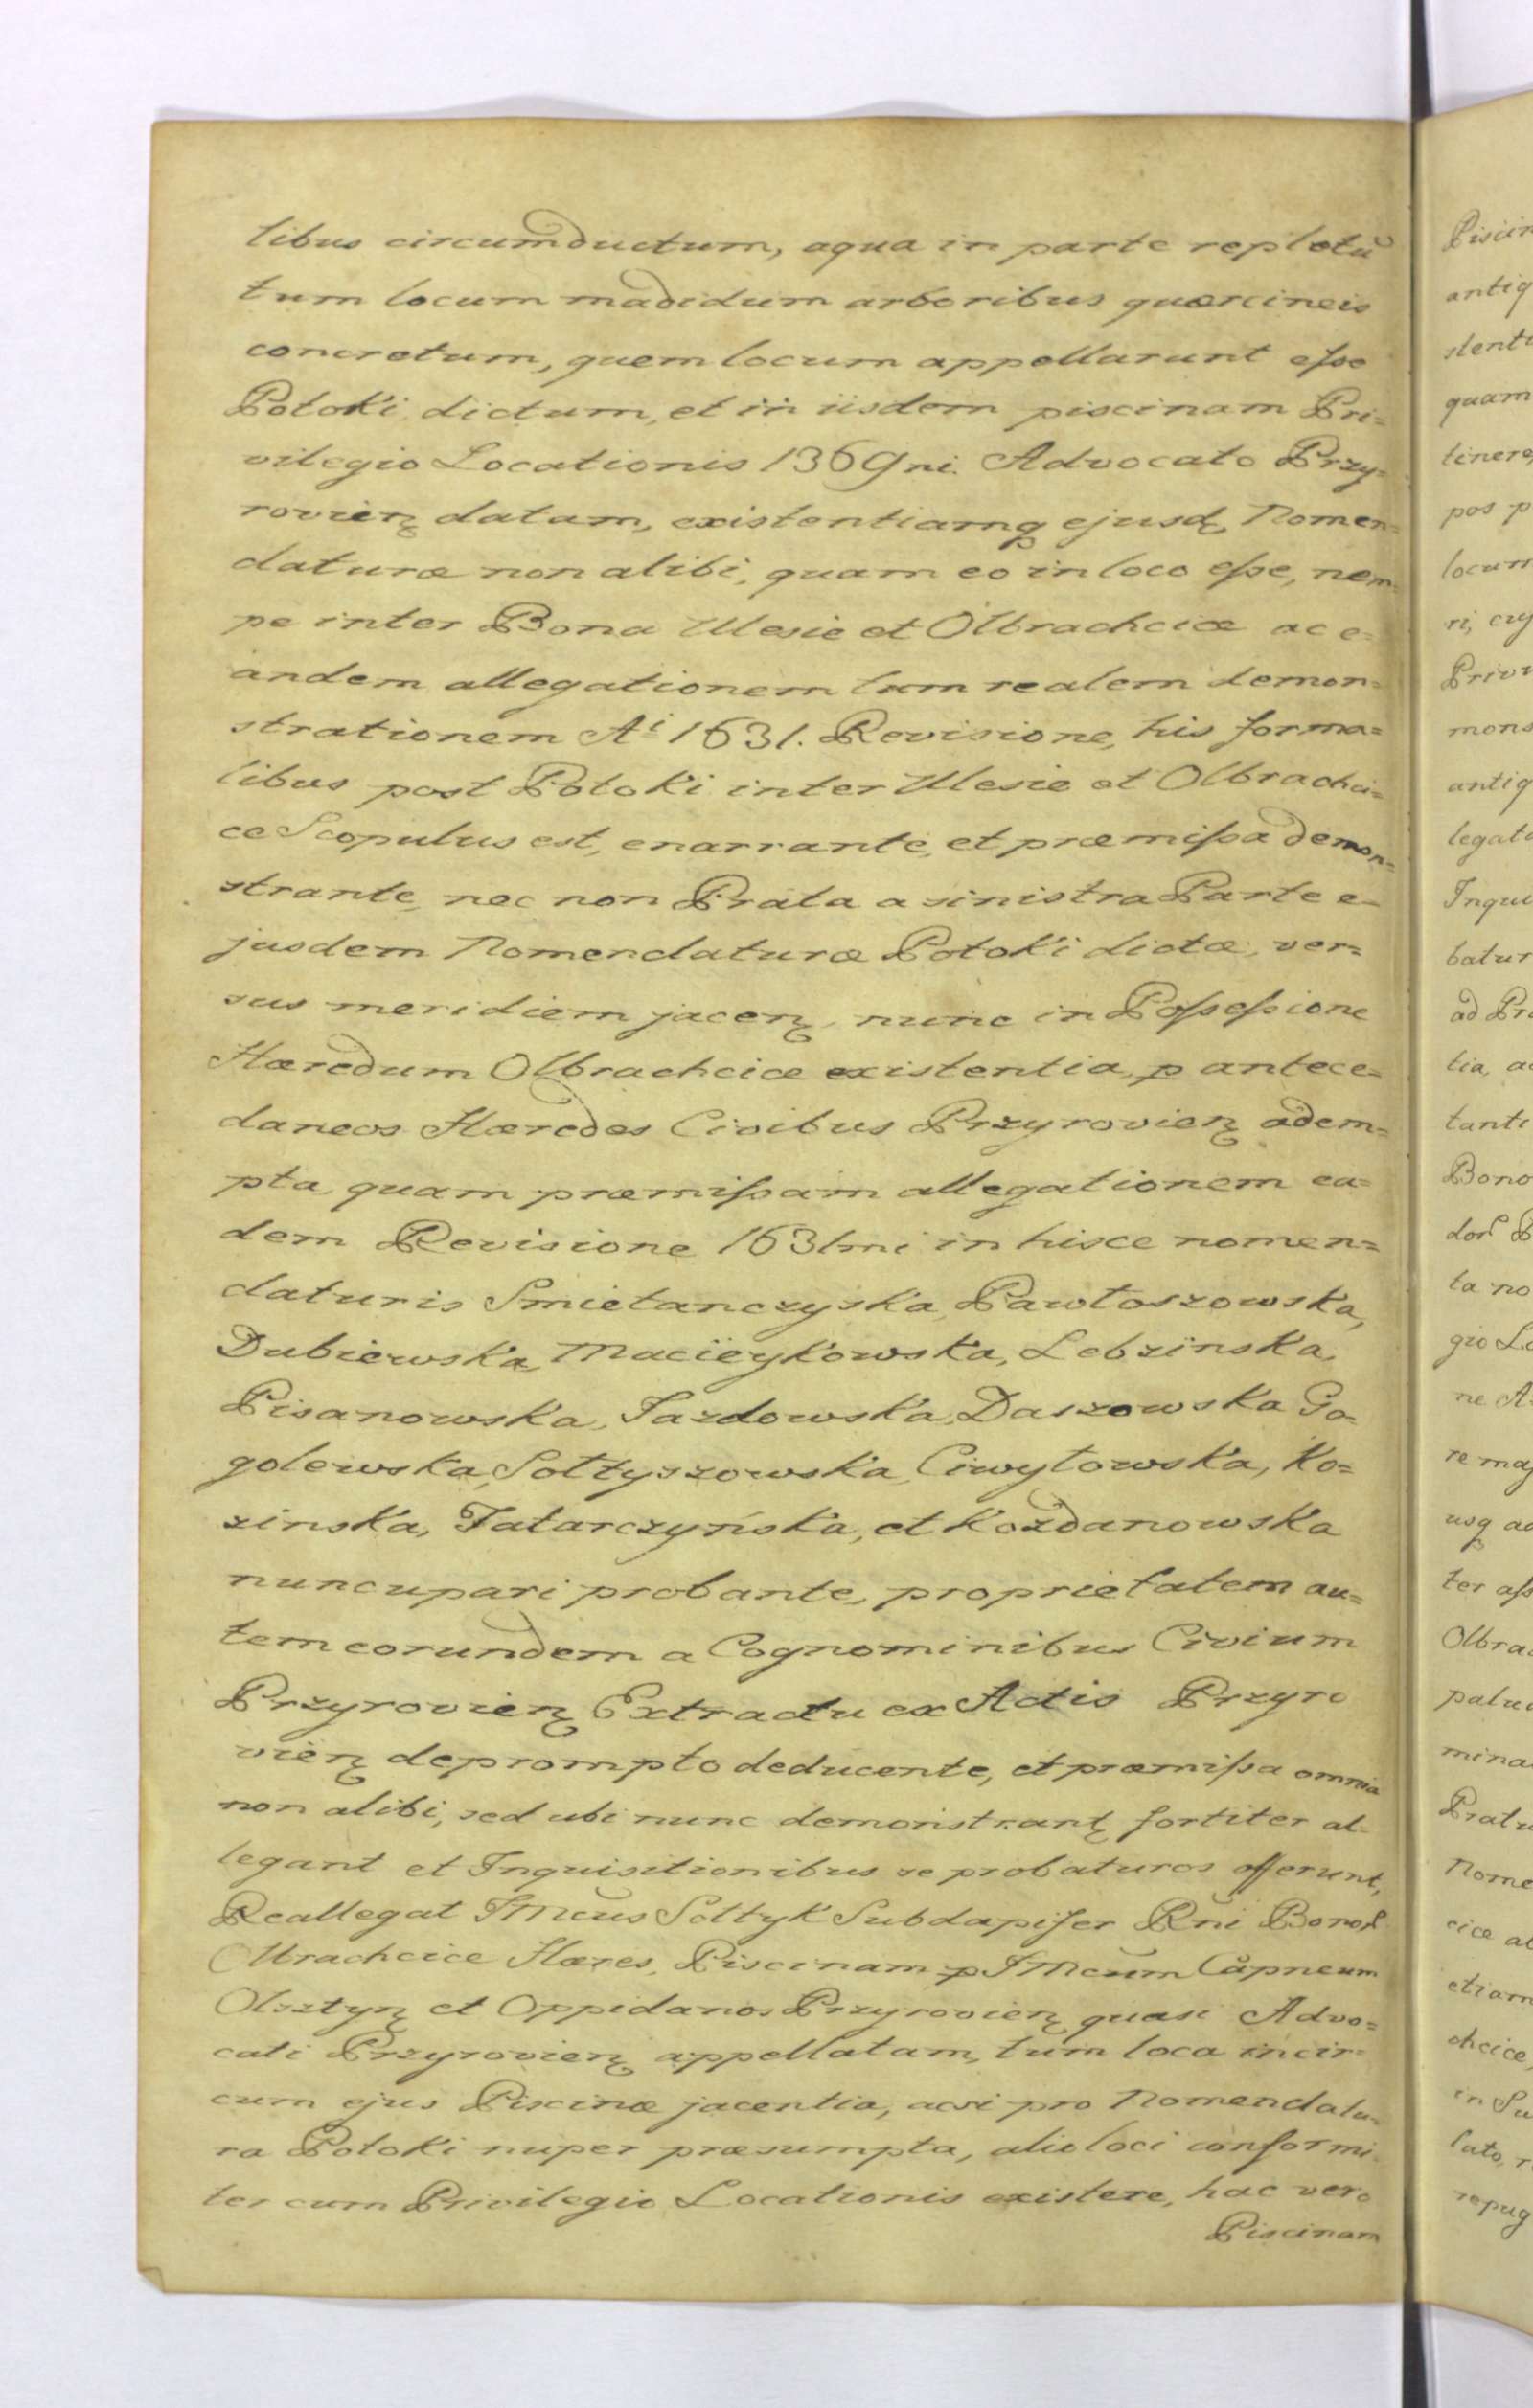 libus circumductum, aqua in parte repletũ
tum locum madidum arboribus quercineis
concretum, quem locum appellarunt eſse
Potoki dictum, et in iisdem piscinam Pri=
vilegio Locationis 1369ni. Advocato Przy=
rovien̄ datam, existentiamq ejusd nomen=
claturæ non alibi, quam eo in loco eſse, nem=
pe inter Bona Ulesie et Olbrachcice ac e=
andem allegationem tum realem demon=
strationem Ai 1631. Revisione, his forma=
libus post Potoki inter Ulesie et Olbrachci=
ce Scopulus est, enarrante, et præmiſsa demon=
strante, nec non Prata a sinistra Parte e=
jusdem Nomenclaturæ Potoki dictæ, ver=
sus meridiem jacen̄, nunc in Poſseſsione
Hæredum Olbrachcice existentia, p antece=
daneos Hæredes Civibus Przyrovien̄ adem=
pta, quam præmiſsam allegationem ea=
dem Revisione 1631mi in hisce nomen=
claturis Smietanczyska, Pawłoszowska,
Dubiewska, Macieykowska, Lebzinska,
Pisanowska, Jazdowska, Daszowska Go=
golewska, Sołtyszowska, Ciwytowska, Ko=
zinska, Tatarczyńska, et Kozdanowska
nuncupari probante, proprietatem au=
tem eorundem a Cognominibus Civium
Przyrovien̄ Extractu ex Actis Przyro
vien̄ deprompto deducente, et præmiſsa omnia
non alibi, sed ubi nunc demonstrant, fortiter al=
legant et Inquisitionibus se probaturos offerunt,
Reallegat JMcus Sołtyk Subdapifer Rni Bonor̄
Olbrachcice Hæres, Piscinam p JMcum Capneum
Olsztyn̄ et Oppidanos Przyrovien̄ quasi Advo=
cati Przyrovien̄ appellatam, tum loca in cir=
cum ejus Piscinæ jacentia, acsi pro Nomenclatu=
ra Potoki nuper præsumpta, alio loci conformi
ter cum Privilegio Locationis existere, hac vero
Piscinam
antiq
quam
tinere,
pos p
locum
mons
antiq
batur
ad Pr
tia, a
tanti
Bono
ta no
gio Lo
ne A
re ma
usq ad
Olbra
palu
mina
Prat
Nome
cice al
etiam
chcice,
in Su
lato, r
repug